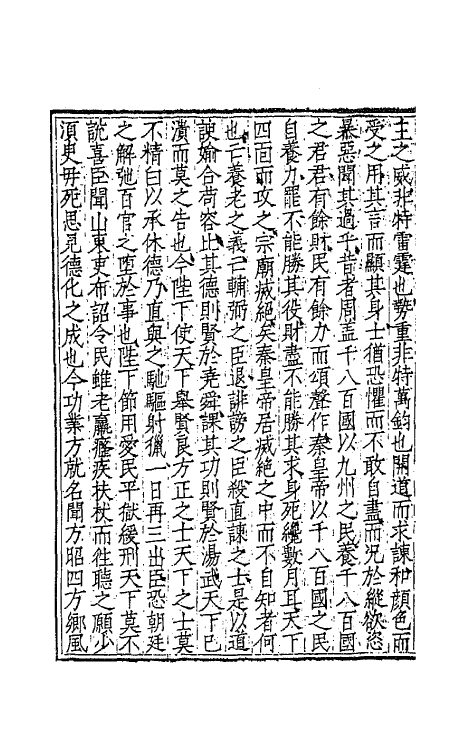 主之威非特雷霆也勢重非特萬鈞也開道而求諫和顏色而
受之用其言而顯其身士猶恐懼而不敢自盡而況於縱欲恣
暴惡聞其過乎昔者周蓋千八百國以九州之民養千八百國
之君君有餘財民有餘力而頌聲作秦皇帝以千八百國之民
自養力罷不能勝其役財盡不能勝其求身死纔數月耳天下
四面而攻之宗廟滅絕矣秦皇帝居滅絕之中而不自知者何
也亡養老之義亡輔弼之臣退誹謗之臣殺直諫之士是以道
諛媮合苟容比其德則賢於堯舜課其功則賢於湯武天下已
潰而莫之告也今陛下使天下舉賢良方正之士天下之士莫
不精白以承休德乃直與之馳驅射獵一日再三出臣恐朝廷
之解弛百官之墮於事也陛下節用愛民平獄緩刑天下莫不
說喜臣聞山東吏布詔令民雖老羸癃疾扶杖而徃聽之願少
須臾毋死思見德化之成也今功業方就名聞方昭四方鄉風